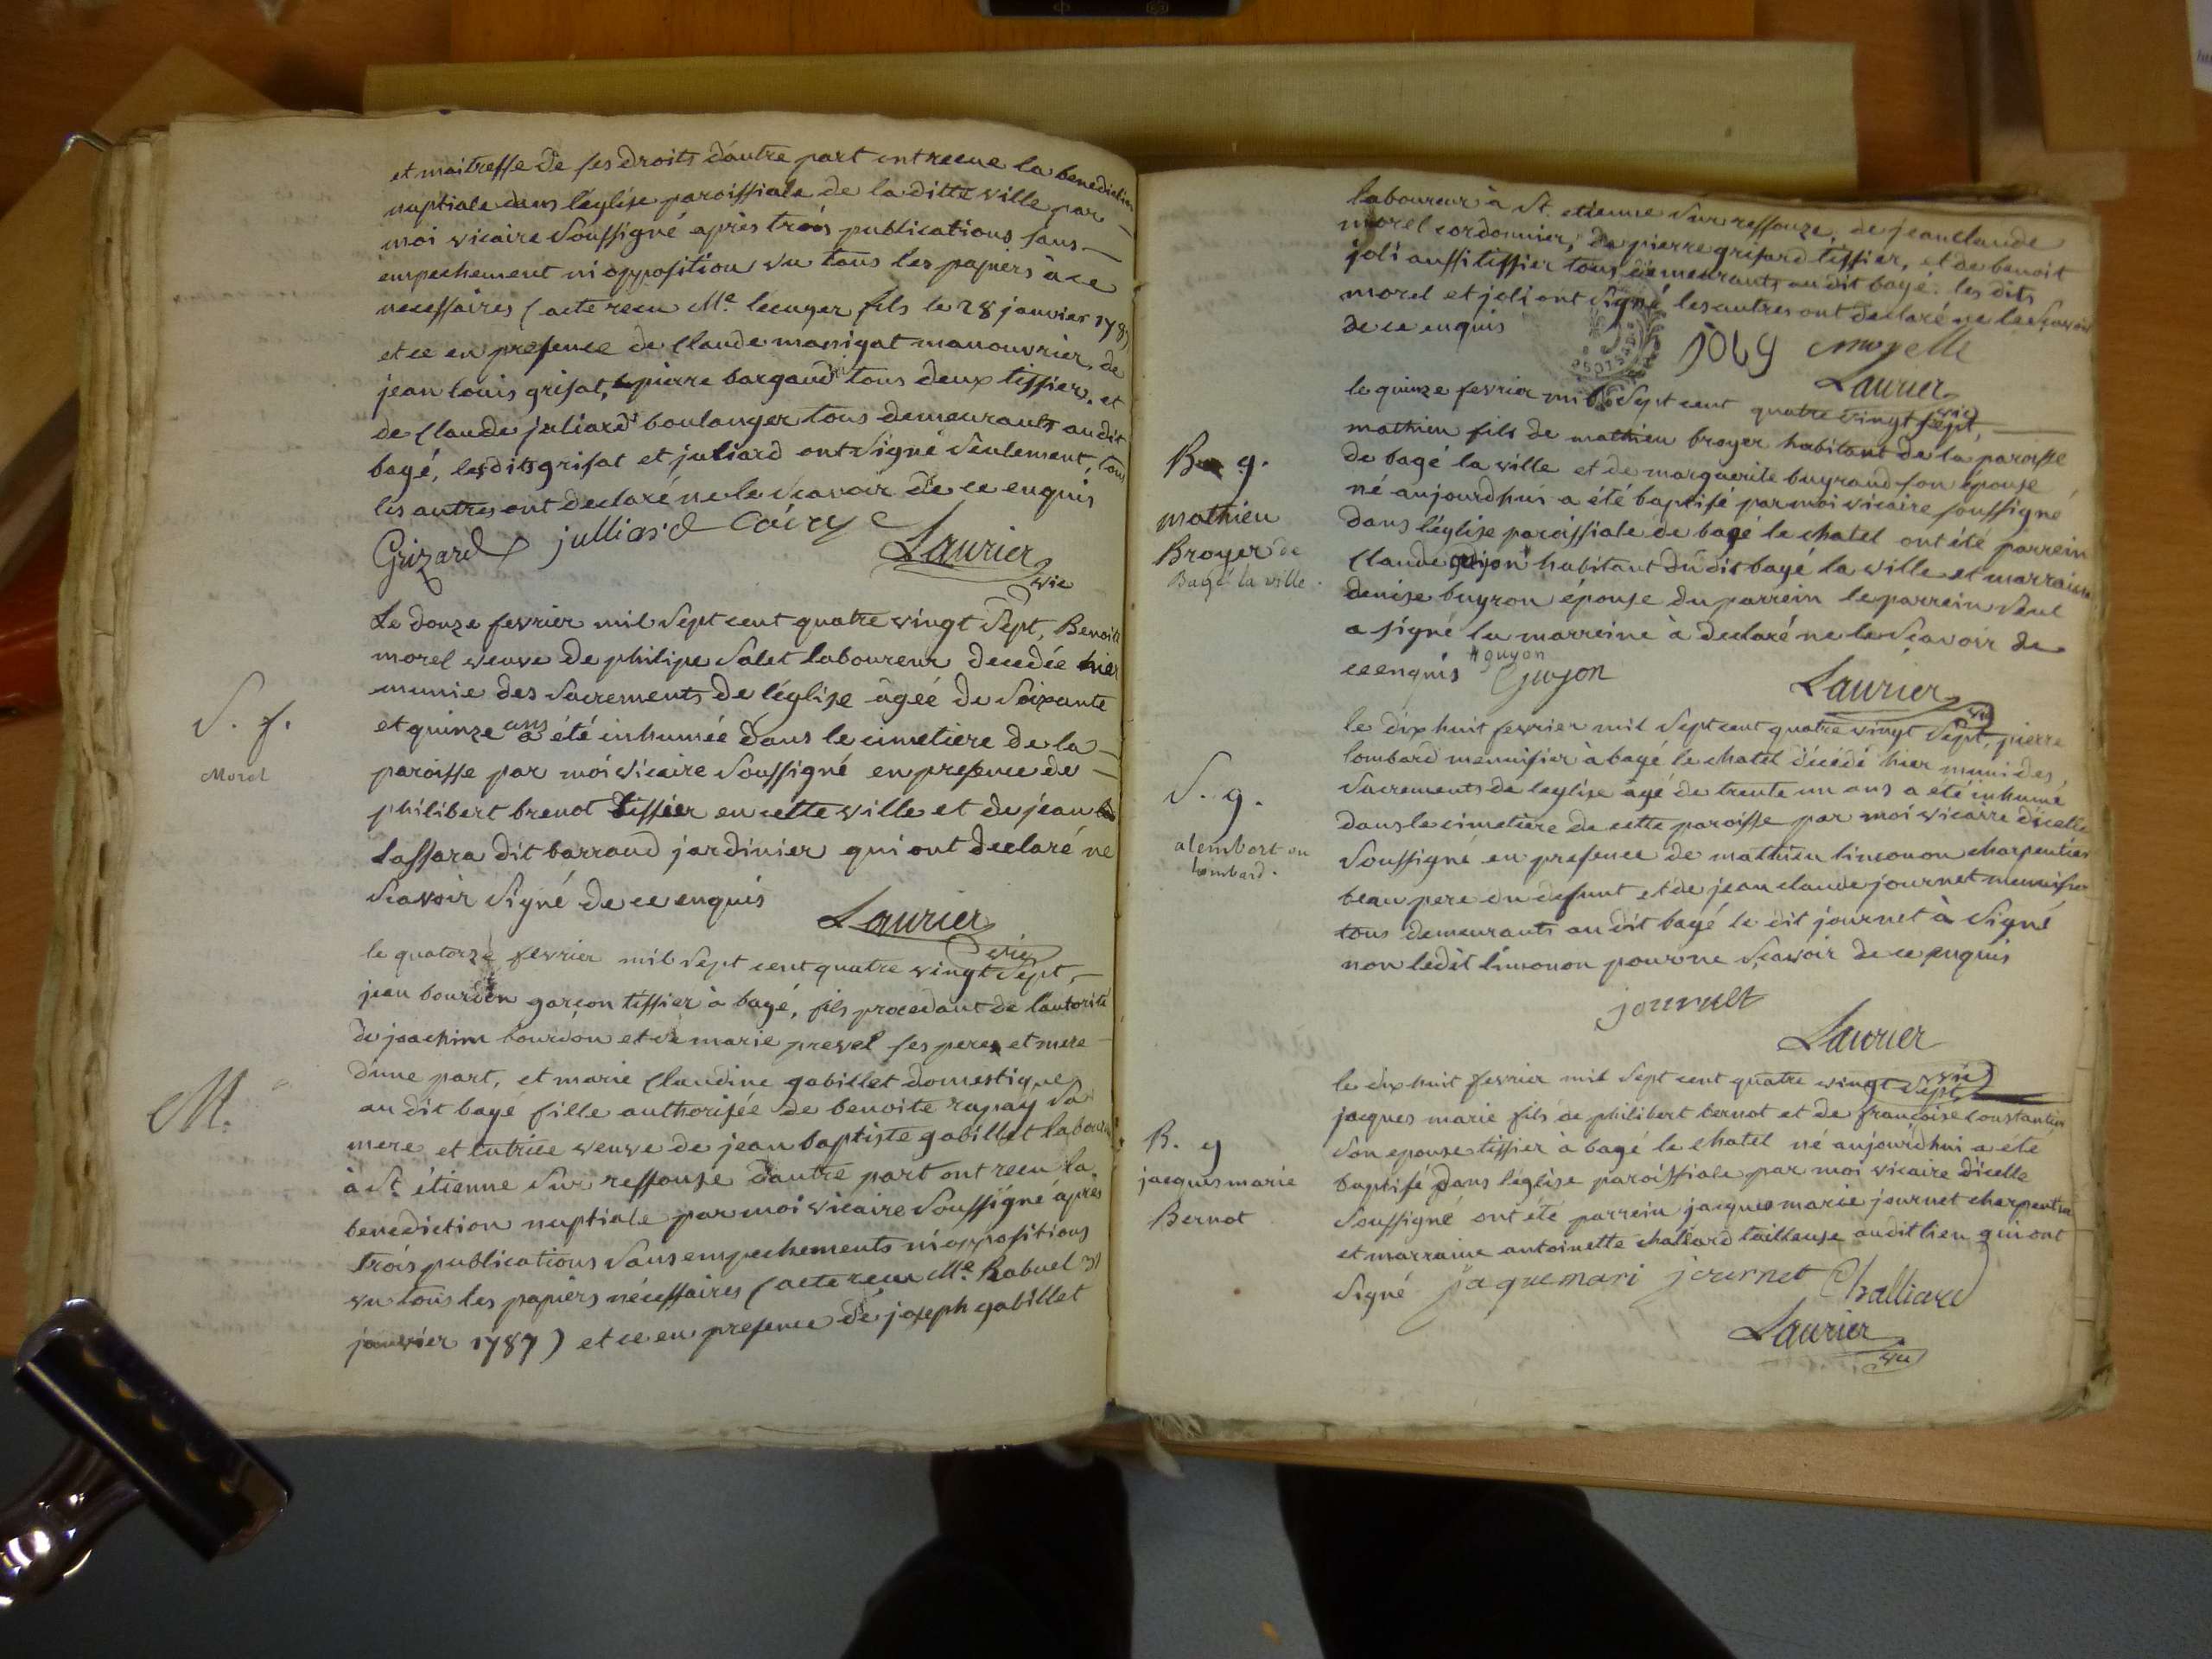 et maitresse de ses droits d'autre part ont receue la benediction
nuptiale dans l'église paroissiale de la ditte ville par
moi vicaire soussigné après trois publications sans
empechement ni opposition vu tous les papiers à ce
necessaires (acte recu Me. lecuyer fils le 28 janvier 178
et ce en presence de claude manigat manouvrier, de
jean louis grisat, pierre bargaud tous deux tissier, et
de claude juliard boulanger tous demeurants au dit
bagé, lesdits grisat et juliard ont signé seulement, tous
les autres ont declaré ne le scavoir de ce enquis
Grizard julliard
Laurier
vic
S. f.
Morel
Le douze fevrier mil sept cent quatre vingt sept, Benoite
morel veuve de philipe salet laboureur decedée hier
munie des sacrements de l'église agée de soixante
et quinze ans a été inhumée dans le cimetiere de la
paroisse par moi vicaire soussigné en presence de
philibert brenot tissier en cette ville et de jean
lassara dit barraud jardinier qui ont declaré ne
scavoir signé de ce enquis
Laurier
vic
M.
le quatorze fevrier mil sept cent quatre vingt sept,
jean bourdon garçon tissier à bagé, fils procedant de l'autorité
de joachim bourdon et de marie prevel ses pere et mere
d'une part, et marie claudine gabillet domestique
au dit bagé fille authorisée de benoite rapay sa
mere et tutrice veuve de jean baptiste gabillet laboureur
à St. étienne sur ressouse d'autre part ont recu la
benediction nuptiale par moi vicaire soussigné après
trois publications sans empechements ni oppositions
vu tous les papiers nécessaires (acte recu Me. Rabuel 31
janvier 1787) et ce en presence de joseph gabillet
laboureur à St. etienne sur ressouze, de jean claude
morel cordonnier, de pierre grisard tissier, et de benoit
joli aussi tissier tous demeurants au dit bagé. les dits
morel et joli ont signé les autres ont declaré ne le scavoir
de ce enquis
joly morelle
Laurier
vic
B g.
mathieu
Broyer de
Bagé la ville.
le quinze fevrier mil sept cent quatre vingt sept,
mathieu fils de mathieu broyer habitant de la paroisse
de bagé la ville et de marguerite buyraud son epouse
né aujourdhui a été baptisé par moi vicaire soussigné
dans l'église paroissiale de bagé le chatel ont été parrein
claude # habitant du dit bagé la ville et marraine
denise buyron épouse du parrein le parrein seul
a signé la marreine à declaré ne le scavoir de
ce enquis # guyon
Guyon
Laurier
vic
S. g.
alembort ou
lombard.
le dix huit fevrier mil sept cent quatre vingt sept, pierre
lombard menuisier à bagé le chatel décédé hier muni des
sacrements de leglise agé de trente un ans a été inhumé
dans le cimetiere de cette paroisse par moi vicaire d'icelle
soussigné en presence de mathieu limonon charpentier
beau pere du defunt et de jean claude journet menuisier
tous demeurants au dit bagé le dit journet à signé
non ledit limonon pour ne scavoir de ce enquis
journet
Laurier
vic
B. g
jacques marie
Bernot
le dix huit fevrier mil sept cent quatre vingt sept
jacques marie fils de philibert bernot et de françoise constantin
son epouse tissier à bagé le chatel né aujourdhui a été
baptisé dans l'église paroissiale par moi vicaire d'icelle
soussigné ont été parrein jacques marie journet charpentier
et marraine antoinette challiard tailleuse audit lieu qui ont
signé jaquemari journet Challiard
Laurier
vic